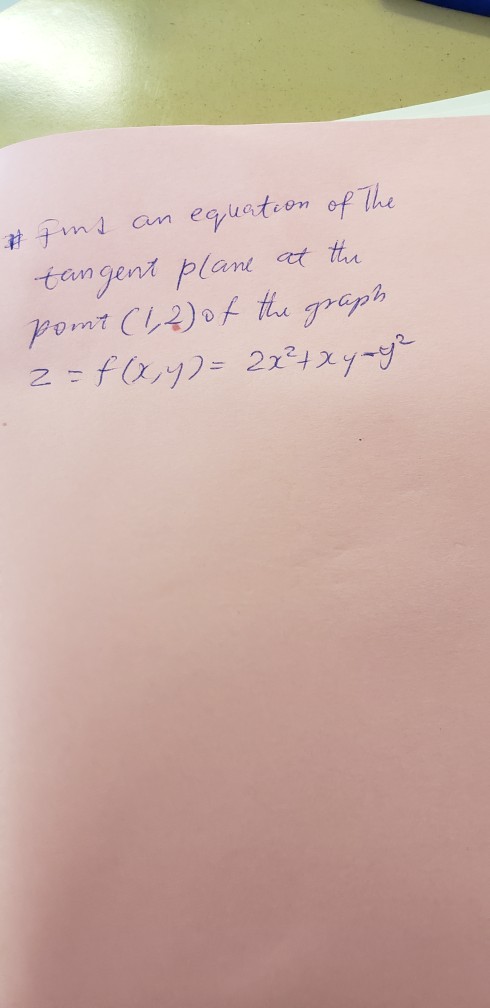 # Find an equation of The
tangent plane at the
point (1,2) of the graph
z = f(x,y) = 2x²+xy-y²